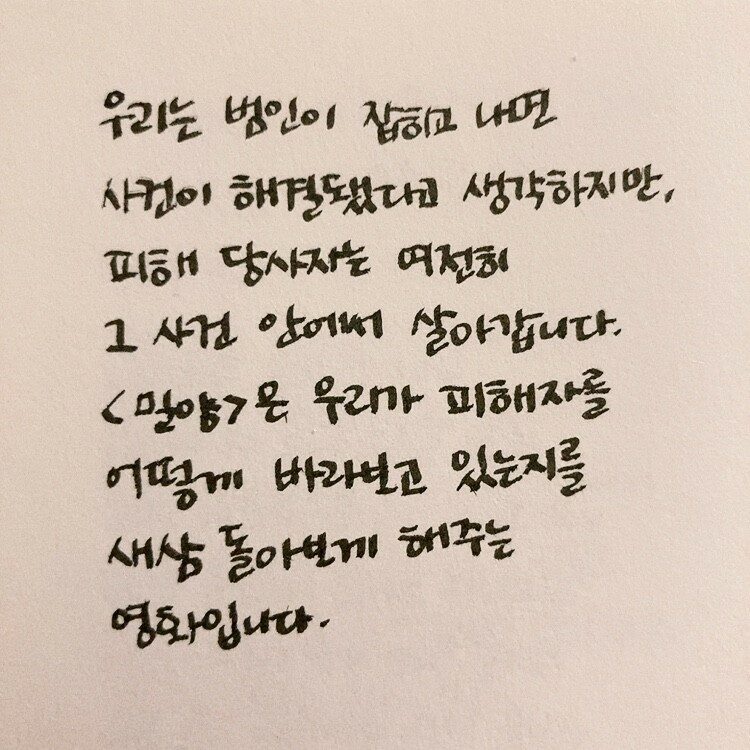 우리는 범인이 잡히고 나면
사건이 해결됐다고 생각하지만,
피해 당사자는 여전히
그 사건 안에서 살아갑니다.
<밀양>은 우리가 피해자를
어떻게 바라보고 있는지를
새삼 돌아보게 해주는
영화입니다.